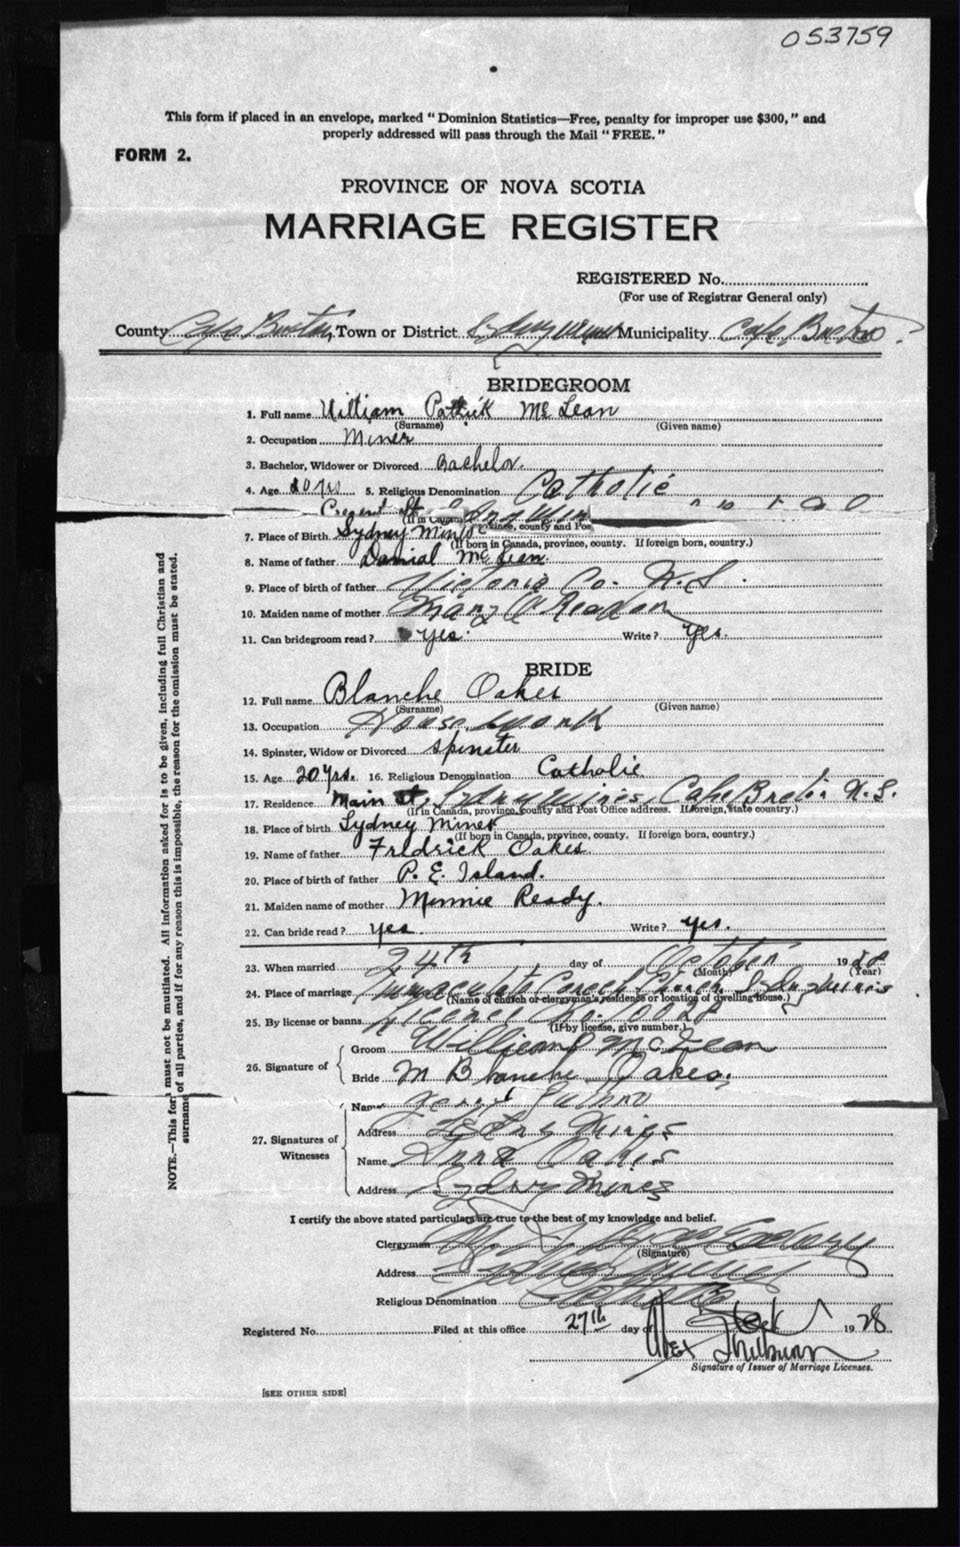 053759
This form if placed in an envelope, marked "Dominion Statistics—Free, penalty for improper use $300," and
properly addressed will pass through the Mail "FREE."
FORM 2.
PROVINCE OF NOVA SCOTIA
MARRIAGE REGISTER
REGISTERED No.
(For use of Registrar General only)
County Cape Breton Town or District Sydney Mines Municipality Cape Breton.
BRIDEGROOM
1. Full name William Patrick Mc Lean
(Surname) (Given name)
2. Occupation Miner
3. Bachelor, Widower or Divorced Bachelor.
4. Age 20 yrs 5. Religious Denomination Catholic
(If in Canada, province, county and Pos
7. Place of Birth Sydney Mines
(If born in Canada, province, county. If foreign born, country.)
8. Name of father Danial Mc Lean.
9. Place of birth of father Victoria Co. N.S.
10. Maiden name of mother Mary
11. Can bridegroom read? yes. Write? yes.
BRIDE
12. Full name Blanche Oakes
(Surname) (Given name)
13. Occupation House work
14. Spinster, Widow or Divorced spinster
15. Age 20 yrs. 16. Religious Denomination Catholic
17. Residence Main St, Sydney Mines, Cape Breton N.S.
(If in Canada, province, county and Post Office address. If foreign, state country.)
18. Place of birth Sydney Mines
(If born in Canada, province, county. If foreign born, country.)
19. Name of father Fredrick Oakes
20. Place of birth of father P. E. Island.
21. Maiden name of mother Minnie Ready.
22. Can bride read? yes. Write? yes.
23. When married 24th day of October 1928
(Month) (Year)
24. Place of marriage Immaculate Church Sydney Mines
(Name of church or clergyman's residence or location of dwelling house.)
25. By license or banns License No. 10028
(If by license, give number.)
26. Signature of
Groom William P McLean
Bride M Blanche Oakes.
27. Signatures of Witnesses
Name
Address Sydney Mines
Name Anna Oakes
Address Sydney Mines
I certify the above stated particulars are true to the best of my knowledge and belief.
Clergyman
(Signature)
Address Sydney Mines
Religious Denomination Catholic
Registered No. Filed at this office 27th day of Oct 1928.
Alex
Signature of Issuer of Marriage Licenses.
[SEE OTHER SIDE]
NOTE.—This form must not be mutilated. All information asked for is to be given, including full Christian and
surname of all parties, and if for any reason this is impossible, the reason for the omission must be stated.